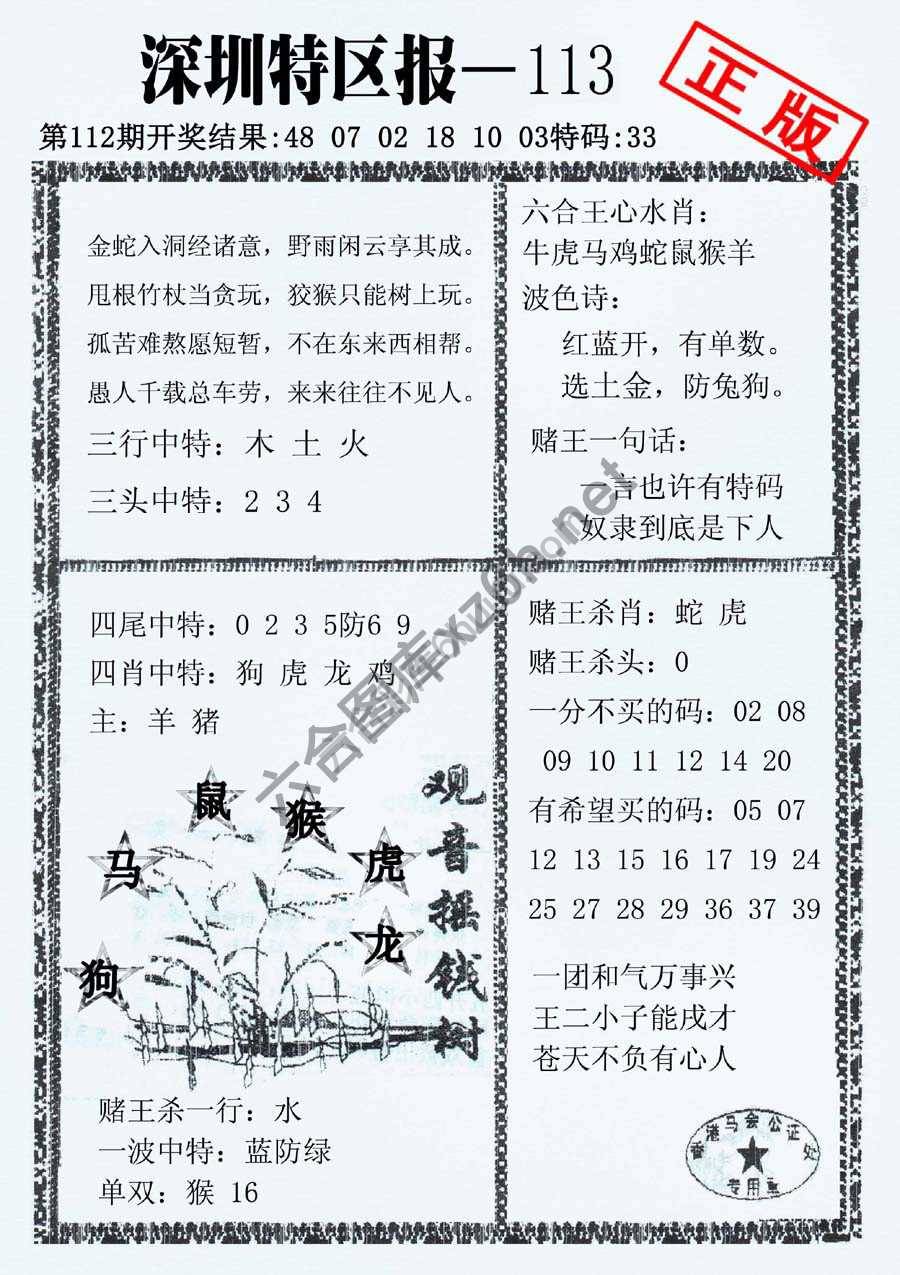 深圳特区报—113
正版
第112期开奖结果:48 07 02 18 10 03特码:33
金蛇入洞经诸意，野雨闲云享其成。
甩根竹杖当贪玩，狡猴只能树上玩。
孤苦难熬愿短暂，不在东来西相帮。
愚人千载总车劳，来来往往不见人。
三行中特：木 土 火
三头中特：2 3 4
六合王心水肖：
牛虎马鸡蛇鼠猴羊
波色诗：
红蓝开，有单数。
选土金，防兔狗。
赌王一句话：
一言也许有特码
奴隶到底是下人
四尾中特：0 2 3 5防6 9
四肖中特：狗 虎 龙 鸡
主：羊 猪
鼠
猴
马
虎
龙
狗
观音摇钱树
赌王杀一行：水
一波中特：蓝防绿
单双：猴 16
赌王杀肖：蛇 虎
赌王杀头：0
一分不买的码：02 08
09 10 11 12 14 20
有希望买的码：05 07
12 13 15 16 17 19 24
25 27 28 29 36 37 39
一团和气万事兴
王二小子能戌才
苍天不负有心人
香港马会公证处
专用
六合图库xz6h.net